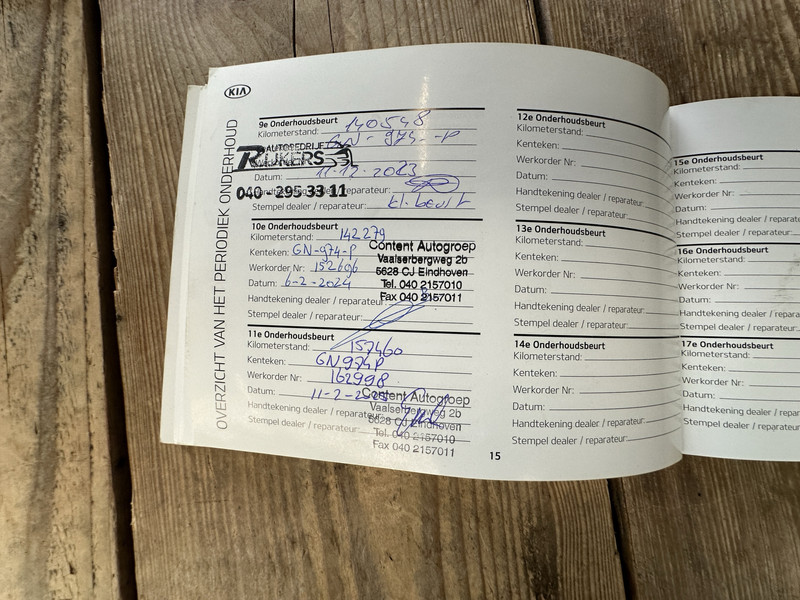 KIA
OVERZICHT VAN HET PERIODIEK ONDERHOUD
9e Onderhoudsbeurt
Kilometerstand: 140548
GN-974-P
AUTOBEDRIJF
RIJKERS
Datum: 11-12-2023
040-295 33 11
Handtekening dealer / reparateur:
Stempel dealer / reparateur: kl. beurt
10e Onderhoudsbeurt
Kilometerstand: 142279
Kenteken: GN-974-P
Werkorder Nr: 152606
Datum: 6-2-2024
Handtekening dealer / reparateur:
Stempel dealer / reparateur:
Content Autogroep
Vaalserbergweg 2b
5628 CJ Eindhoven
Tel. 040 2157010
Fax 040 2157011
11e Onderhoudsbeurt
Kilometerstand: 157460
Kenteken: GN974P
Werkorder Nr: 162998
Datum: 11-2-
Handtekening dealer / reparateur:
Stempel dealer / reparateur:
Content Autogroep
Vaalserbergweg 2b
5628 CJ Eindhoven
Tel. 040 2157010
Fax 040 2157011
15
12e Onderhoudsbeurt
Kilometerstand:
Kenteken:
Werkorder Nr:
Datum:
Handtekening dealer / reparateur:
Stempel dealer / reparateur:
13e Onderhoudsbeurt
Kilometerstand:
Kenteken:
Werkorder Nr:
Datum:
Handtekening dealer / reparateur:
Stempel dealer / reparateur:
14e Onderhoudsbeurt
Kilometerstand:
Kenteken:
Werkorder Nr:
Datum:
Handtekening dealer / reparateur:
Stempel dealer / reparateur:
15e Onderhoudsbeurt
Kilometerstand:
Kenteken:
Werkorder Nr:
Datum:
Handtekening dealer / reparate
Stempel dealer / reparateur:
16e Onderhoudsbeurt
Kilometerstand:
Kenteken:
Werkorder Nr:
Datum:
Handtekening dealer / repara
Stempel dealer / reparateur:
17e Onderhoudsbeurt
Kilometerstand:
Kenteken:
Werkorder Nr:
Datum:
Handtekening dealer / repara
Stempel dealer / reparateur: